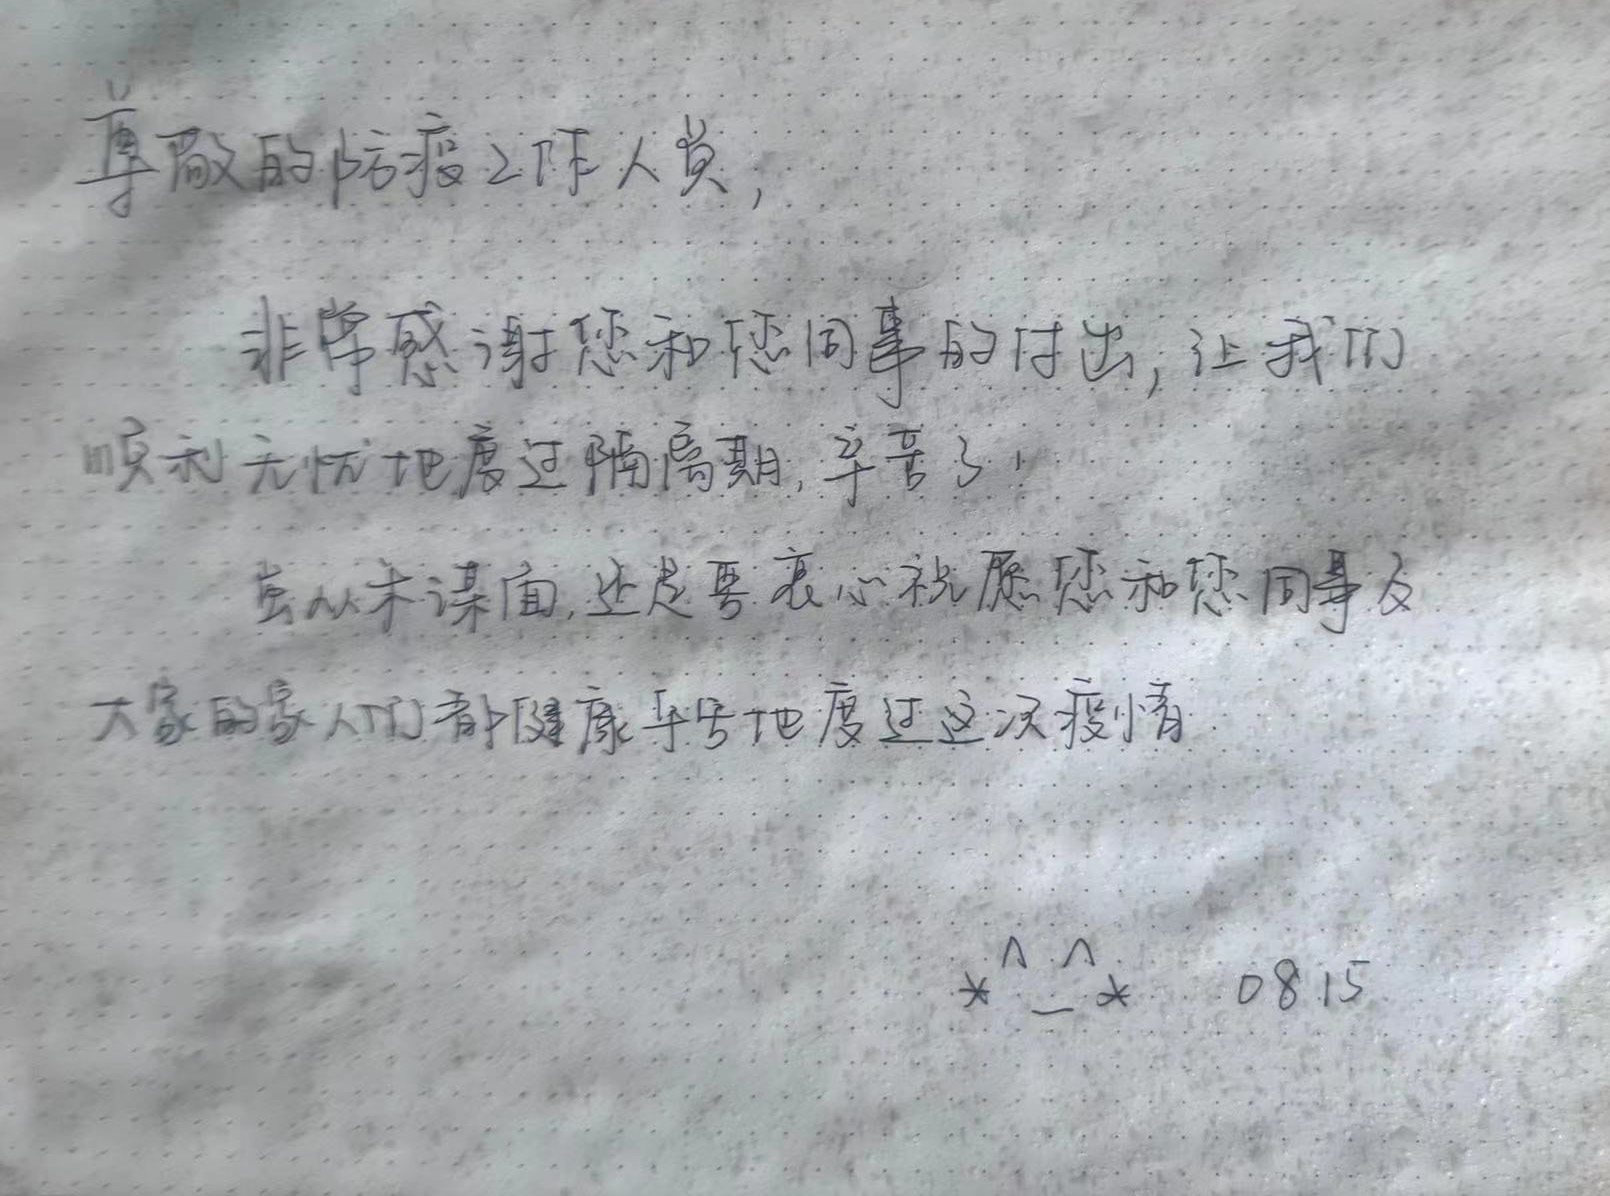 尊敬的防疫工作人员,
非常感谢您和您同事的付出,让我们
顺利无忧地度过隔离期,辛苦了,
虽从未谋面,还是要衷心祝愿您和您同事及
大家的家人们都健康平安地度过这次疫情.
*^_^* 0815